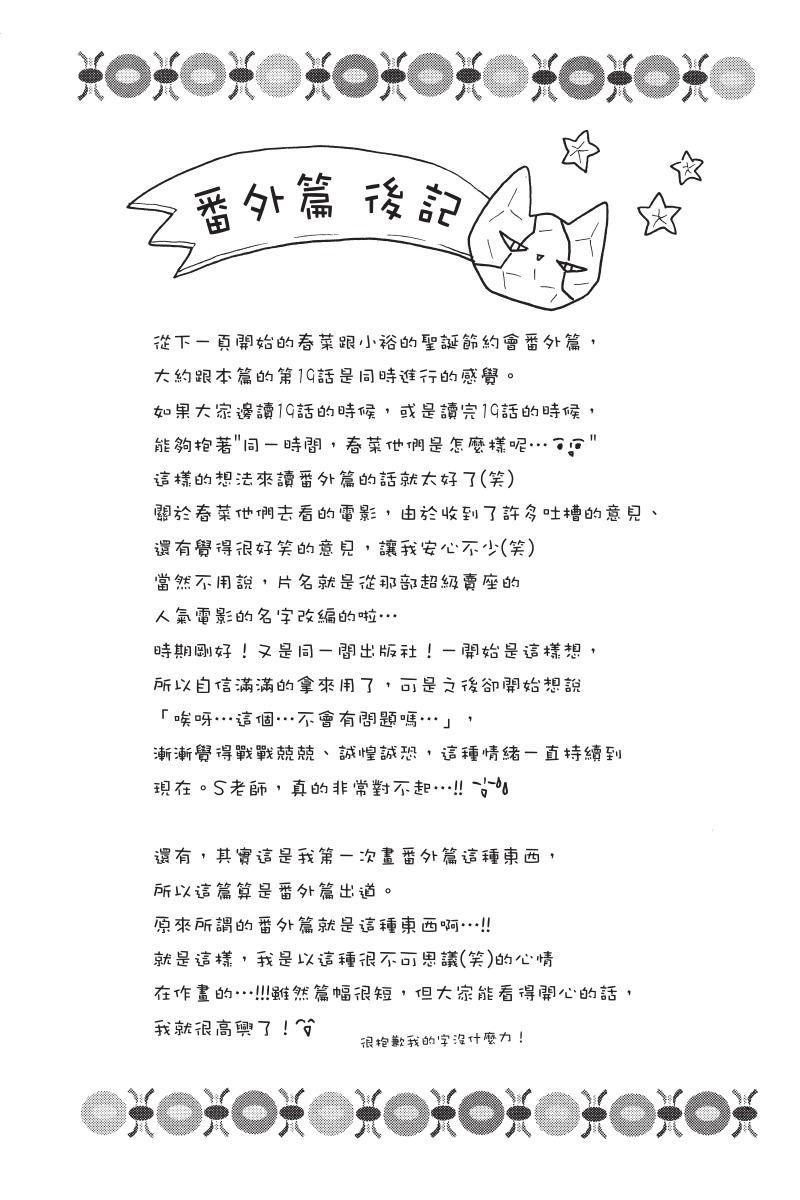 番外篇 後記
從下一頁開始的春菜跟小裕的聖誕節約會番外篇，
大約跟本篇的第19話是同時進行的感覺。
如果大家邊讀19話的時候，或是讀完19話的時候，
能夠抱著"同一時間，春菜他們是怎麼樣呢⋯"
這樣的想法來讀番外篇的話就太好了(笑)
關於春菜他們去看的電影，由於收到了許多吐槽的意見、
還有覺得很好笑的意見，讓我安心不少(笑)
當然不用說，片名就是從那部超級賣座的
人氣電影的名字改編的啦⋯
時期剛好！又是同一間出版社！一開始是這樣想，
所以自信滿滿的拿來用了，可是之後卻開始想說
「唉呀⋯這個⋯不會有問題嗎⋯」，
漸漸覺得戰戰兢兢、誠惶誠恐，這種情緒一直持續到
現在。S老師，真的非常對不起⋯!!
還有，其實這是我第一次畫番外篇這種東西，
所以這篇算是番外篇出道。
原來所謂的番外篇就是這種東西啊⋯!!
就是這樣，我是以這種很不可思議(笑)的心情
在作畫的⋯!!!雖然篇幅很短，但大家能看得開心的話，
我就很高興了！
很抱歉我的字沒什麼力！